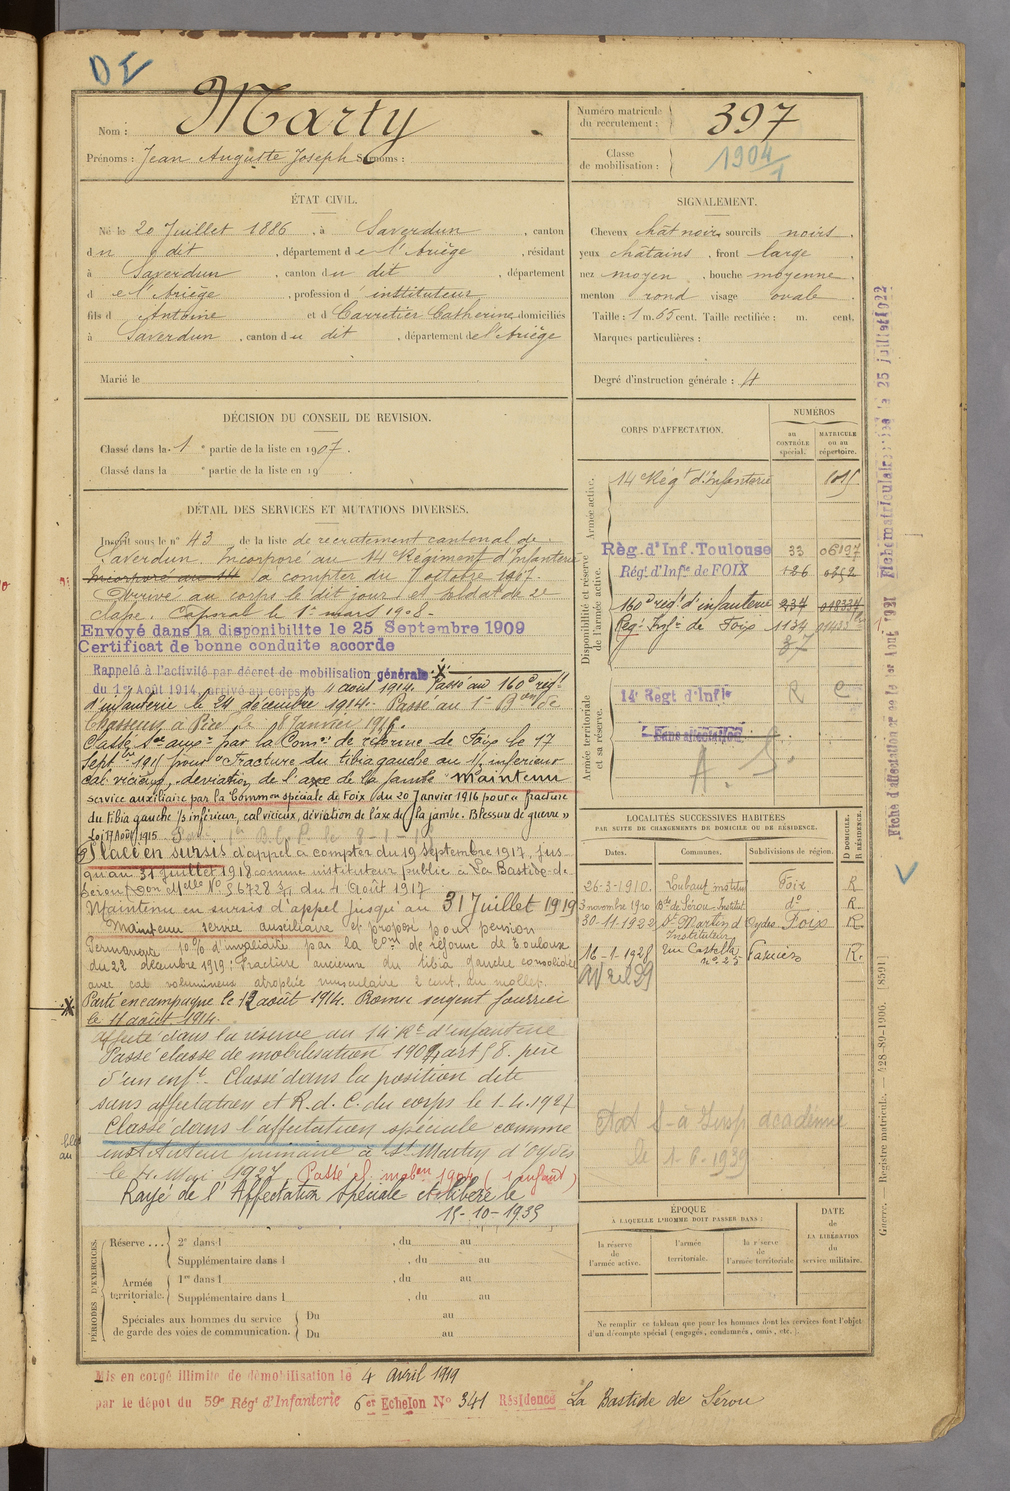 DE
Nom : Marty
Prénoms : Jean Auguste Joseph Surnoms :
Numéro matricule du recrutement : 397
Classe de mobilisation : 1904/1
ÉTAT CIVIL.
Né le 20 Juillet 1886, à Saverdun, canton
du dit, département de l'Ariège, résidant
à Saverdun, canton du dit, département
de l'Ariège, profession d'instituteur
fils d Antoine et d Carretier Catherine domiciliés
à Saverdun, canton du dit, département de l'Ariège
Marié le
SIGNALEMENT.
Cheveux chât noirs, sourcils noirs,
yeux châtains, front large,
nez moyen, bouche moyenne,
menton rond visage ovale.
Taille : 1 m. 65 cent. Taille rectifiée : m. cent.
Marques particulières :
Degré d'instruction générale : 4
DÉCISION DU CONSEIL DE REVISION.
Classé dans la 1e partie de la liste en 1907.
Classé dans la e partie de la liste en 19 .
DÉTAIL DES SERVICES ET MUTATIONS DIVERSES.
Inscrit sous le n° 43 de la liste de recrutement cantonal de
Saverdun. Incorporé au 14e Régiment d'Infanterie
Incorporé au 14e à compter du 8 octobre 1907.
Arrivé au corps le dit jour et soldat de 2e
classe. Caporal le 1er mars 1908.
Envoyé dans la disponibilite le 25 Septembre 1909
Certificat de bonne conduite accorde
Rappelé à l'activité par décret de mobilisation générale
du 1er Août 1914, arrivé au corps le 4 août 1914. Passé au 160e régt
d'infanterie le 24 décembre 1914. Passé au 1er Bon de
Chasseurs à Pied le 8 Janvier 1915.
Classé Sce auxre par la Comon de réforme de Foix le 17
Septbre 1915 pour "Fracture du tibia gauche au 1/3 inférieur
cal vicieux, déviation de l'axe de la jambe" Maintenu
service auxiliaire par la Common spéciale de Foix du 20 Janvier 1916 pour « fracture
du tibia gauche 1/3 inférieur, cal vicieux, déviation de l'axe de la jambe. Blessure de guerre »
Loi 17 Août 1915
Placé en sursis d'appel à compter du 19 Septembre 1917, jus-
qu'au 31 juillet 1918 comme instituteur public à La Bastide-de-
Sérou Don Mlle No 56728 3/1 du 4 Août 1917
Maintenu en sursis d'appel jusqu'au 31 Juillet 1919
Maintenu service auxiliaire et proposé pour pension
Permanente 10% d'invalidité par la Con de réforme de Toulouse
du 22 décembre 1919 : Fracture ancienne du tibia gauche consolidée
avec cal volumineux atrophie musculaire 2 cent. du mollet.
Parti en campagne le 12 août 1914. Promu sergent fourrier
le 11 août 1914.
Affecté dans la réserve au 14e Rt d'infanterie
Passé classe de mobilisation 1904, art 58. père
d'un enft. Classé dans la position dite
sans affectation et R.d.C. du corps le 1-4-1927
Classé dans l'affectation spéciale comme
instituteur primaire à St Martin d'Oydes
le 4 Mai 1927 Passé cl. mobon 1904 (1 enfant)
Rayé de l'Affectation Spéciale et libéré le
15-10-1935
CORPS D'AFFECTATION.
NUMÉROS
au CONTRÔLE spécial.
MATRICULE ou au répertoire.
Armée active.
14e Régt d'Infanterie 1015
Disponibilité et réserve de l'armée active.
Règ. d'Inf. Toulouse 33 06197
Régt. d'Infie de FOIX
160e régt d'infanterie 234
Régt Infie de Foix 1134
37
Armée territoriale et sa réserve.
14e Regt d'Infie R C
Sans affectation
A. S.
LOCALITÉS SUCCESSIVES HABITÉES
PAR SUITE DE CHANGEMENTS DE DOMICILE OU DE RÉSIDENCE.
Dates. Communes. Subdivisions de région. D DOMICILE. R RÉSIDENCE.
26-3-1910. Loubaut institut Foix R
3 novembre 1920 Bde de Sérou Institut do R
30-11-1922 St Martin d'Oydes Instituteur Foix R
16-1-1928 Rue Castella n° 25 Pamiers R.
Avril 29
Aff S-à Insp académie
le 1-6-1939
ÉPOQUE
À LAQUELLE L'HOMME DOIT PASSER DANS :
la réserve de l'armée active.
l'armée territoriale.
la réserve de l'armée territoriale
DATE de LA LIBÉRATION du service militaire.
Ne remplir ce tableau que pour les hommes dont les services font l'objet
d'un décompte spécial (engagés, condamnés, omis, etc.).
PÉRIODES D'EXERCICES.
Réserve ... 2e dans l , du au
Supplémentaire dans l , du au
Armée territoriale. 1re dans l , du au
Supplémentaire dans l , du au
Spéciales aux hommes du service de garde des voies de communication. Du au
Du au
Mis en congé illimité de démobilisation le 4 avril 1919
par le dépôt du 59e Rég. d'Infanterie 6e Echelon No 341 Résidence La Bastide de Sérou
Guerre. — Registre matricule. — 428-89-1906. [8591]